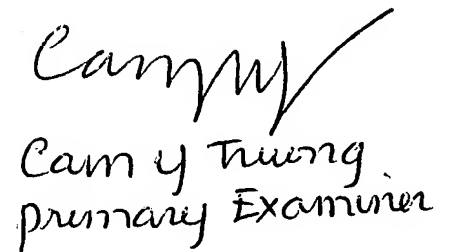 Camy
Cam y Truong
primary Examiner